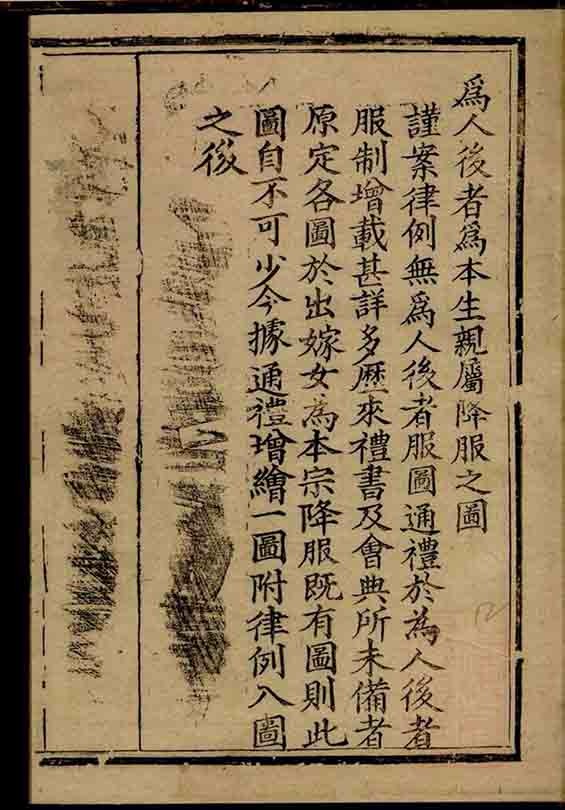 爲人後者爲本生親屬降服之圖
謹案律例無爲人後者服圖通禮於爲人後者
服制增載甚詳多歷來禮書及會典所未備者
原定各圖於出嫁女為本宗降服既有圖則此
圖自不可少今據通禮增繪一圖附律例八圖
之後